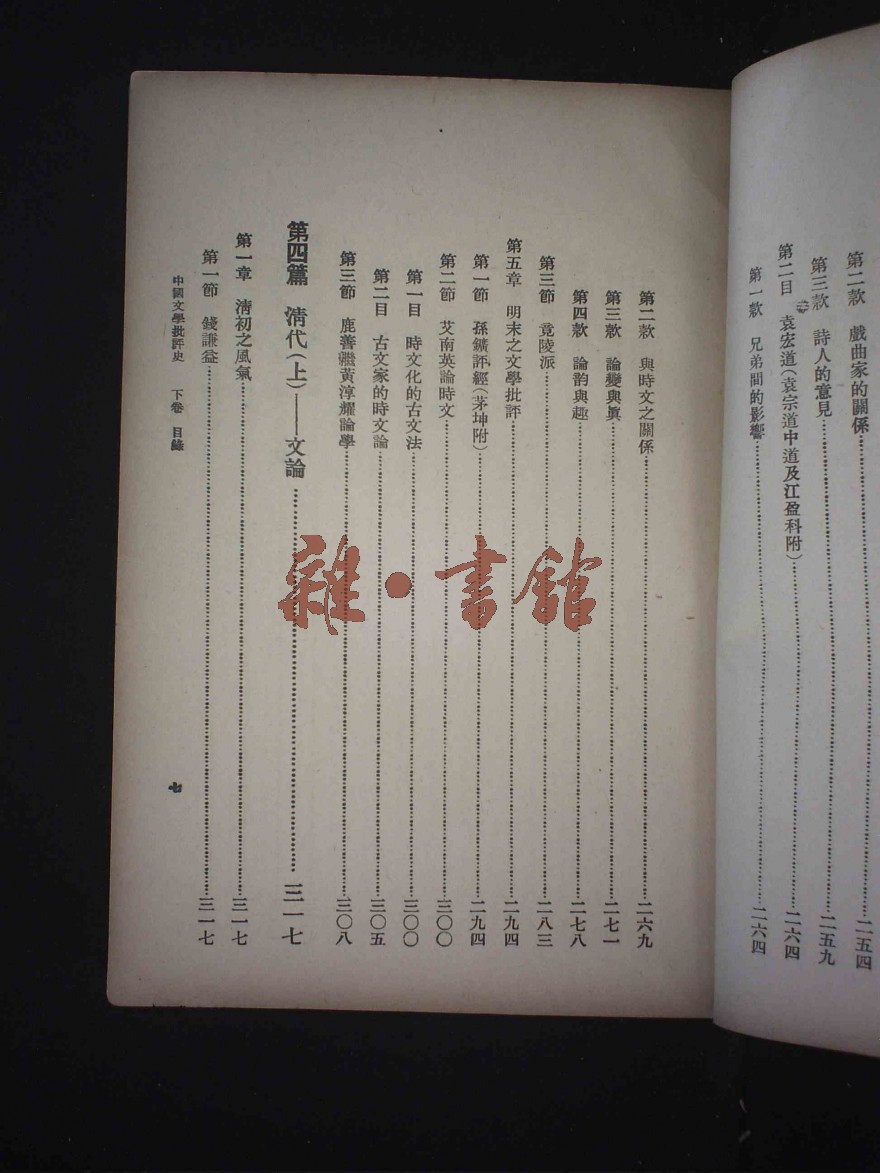 第二款　戲曲家的關係……二五四
第三款　詩人的意見……二五九
第二目　袁宏道(袁宗道中道及江盈科附)……二六四
第一款　兄弟間的影響……二六四
第二款　與時文之關係……二六九
第三款　論變與眞……二七一
第四款　論韵與趣……二七八
第三節　竟陵派……二八三
第五章　明末之文學批評……二九四
第一節　孫鑛評經(茅坤附)……二九四
第二節　艾南英論時文……三〇〇
第一目　時文化的古文法……三〇〇
第二目　古文家的時文論……三〇五
第三節　鹿善繼黃淳耀論學……三〇八
第四篇　清代(上)——文論……三一七
第一章　淸初之風氣……三一七
第一節　錢謙益……三一七
中國文學批評史　下卷　目錄
七
雜·書館